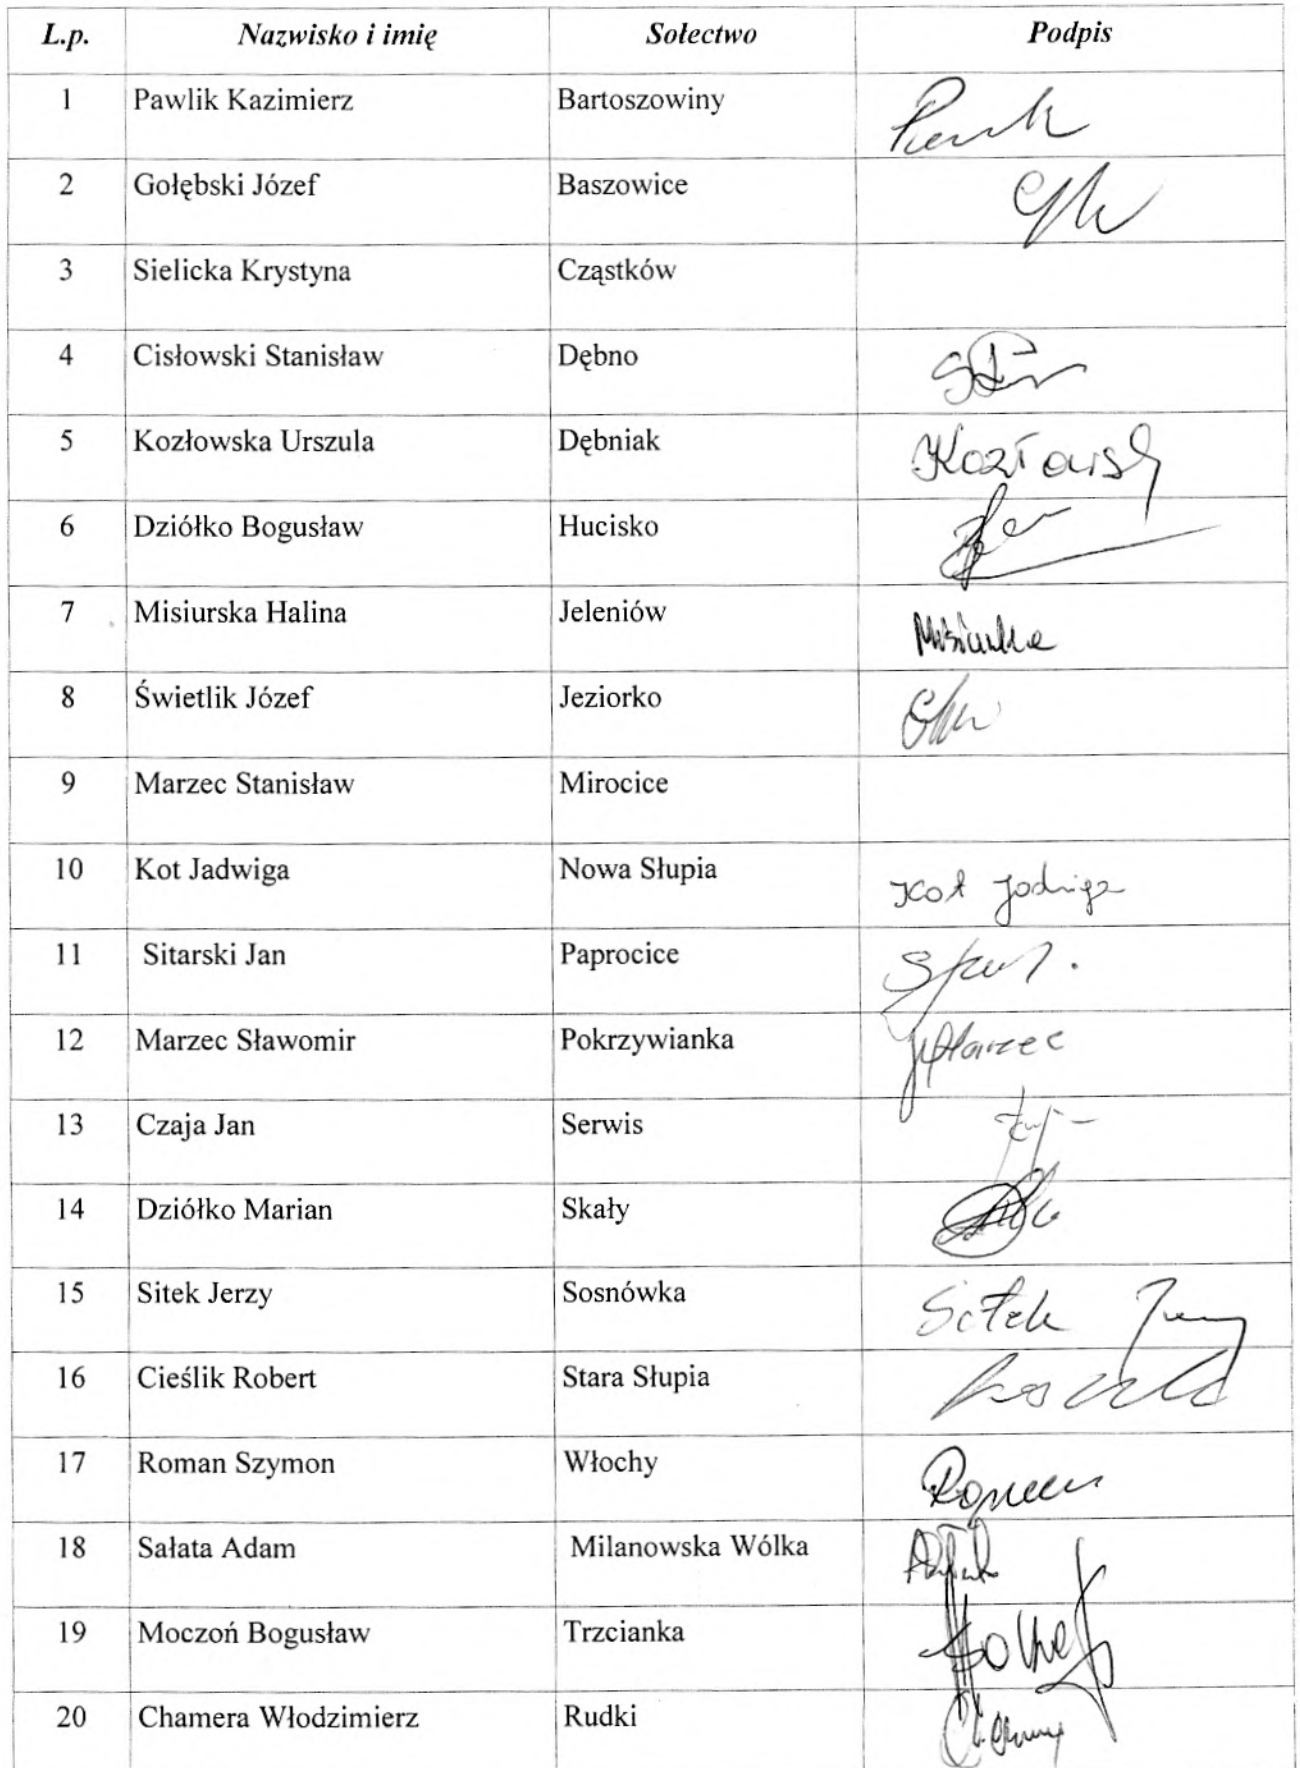 L.p. Nazwisko i imię Sołectwo Podpis
1 Pawlik Kazimierz Bartoszowiny
2 Gołębski Józef Baszowice
3 Sielicka Krystyna Cząstków
4 Cisłowski Stanisław Dębno
5 Kozłowska Urszula Dębniak
6 Dziółko Bogusław Hucisko
7 Misiurska Halina Jeleniów
8 Świetlik Józef Jeziorko
9 Marzec Stanisław Mirocice
10 Kot Jadwiga Nowa Słupia Kot Jadwiga
11 Sitarski Jan Paprocice
12 Marzec Sławomir Pokrzywianka Marzec
13 Czaja Jan Serwis
14 Dziółko Marian Skały
15 Sitek Jerzy Sosnówka Sitek Jerzy
16 Cieślik Robert Stara Słupia
17 Roman Szymon Włochy Roman
18 Sałata Adam Milanowska Wólka
19 Moczoń Bogusław Trzcianka
20 Chamera Włodzimierz Rudki